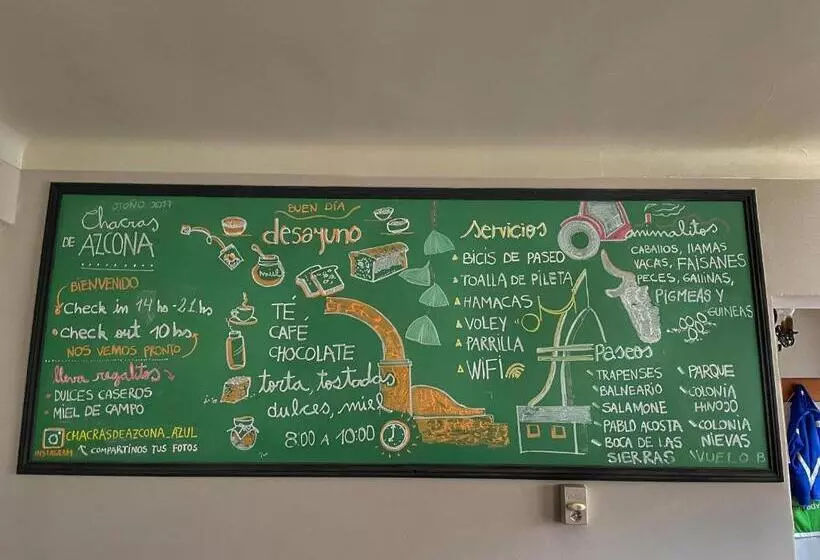 OTOÑO 2017
Chacras
DE AZCONA
BIENVENIDO
Check in 14 hs - 21 hs
Check out 10 hs
NOS VEMOS PRONTO
lleva regalitos
DULCES CASEROS
MIEL DE CAMPO
CHACRASDEAZCONA_AZUL
INSTAGRAM
COMPARTINOS TUS FOTOS
BUEN DÍA
desayuno
miel
TÉ
CAFÉ
CHOCOLATE
torta, tostadas
dulces, miel
8:00 A 10:00
Servicios
BICIS DE PASEO
TOALLA DE PILETA
HAMACAS
VOLEY
PARRILLA
WIFI
animalitos
CABALLOS, LLAMAS
VACAS, FAISANES
PECES, GALLINAS,
PIGMEAS Y
GUINEAS
Paseos
TRAPENSES
BALNEARIO
SALAMONE
PABLO ACOSTA
BOCA DE LAS
SIERRAS
PARQUE
COLONIA
HINOJO
COLONIA
NIEVAS
VUELO B